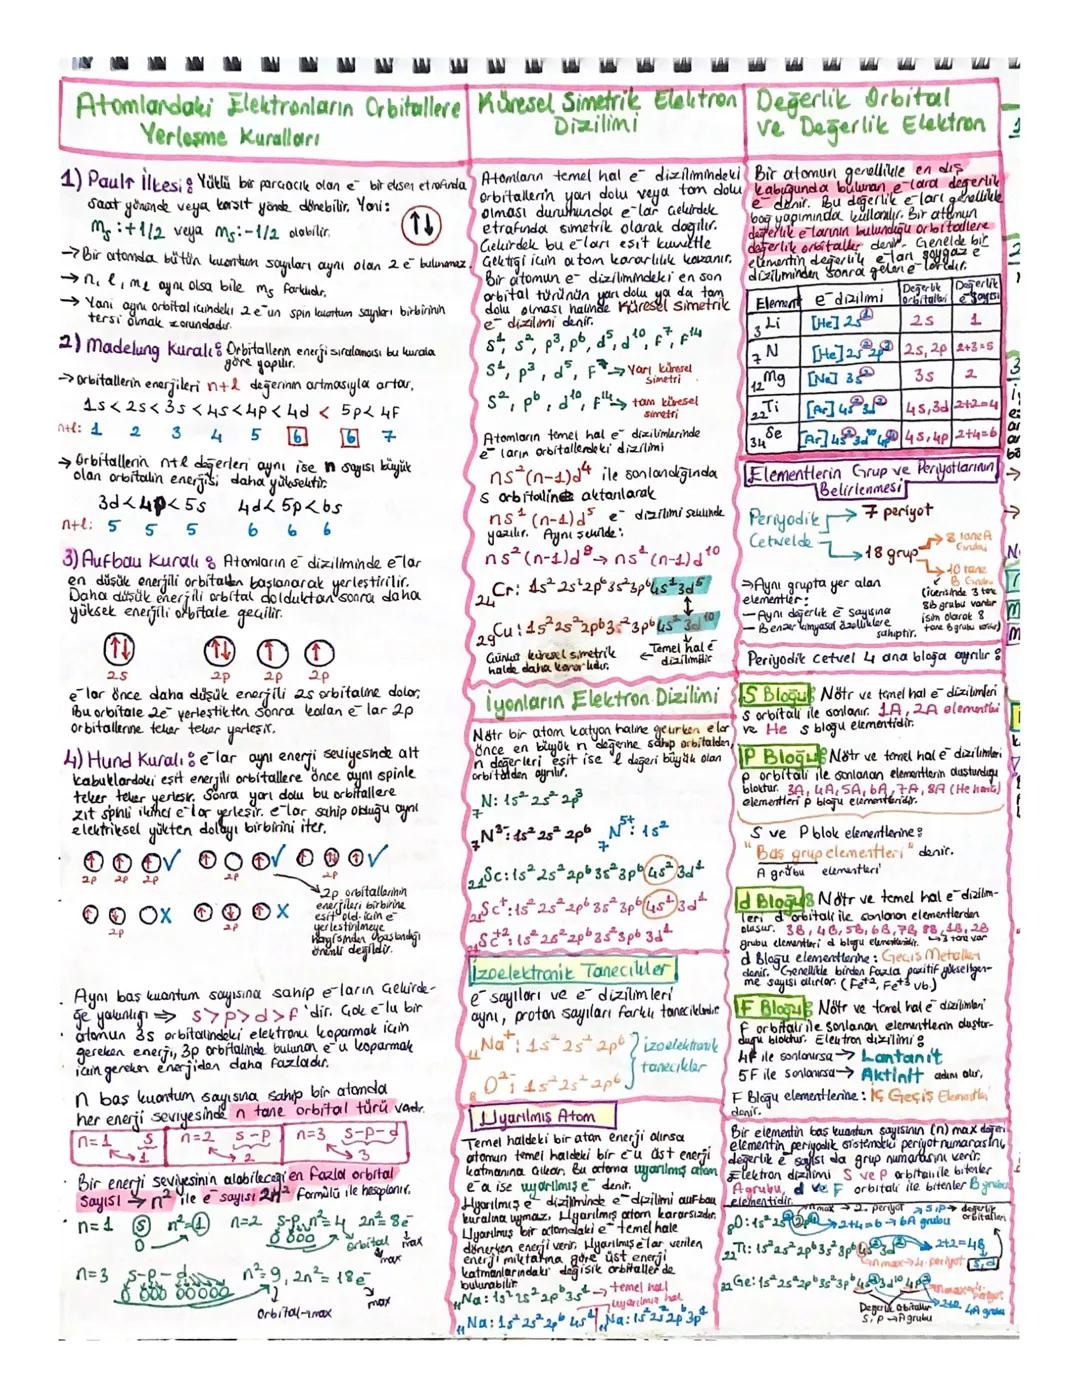 Atomlardaki Elektronların Orbitallere
Yerleşme Kuralları
1) Paulı İlkesi: Yüklü bir parçacık olan e⁻ bir eksen etrafında
saat yönünde veya karşıt yönde dönebilir. Yani:
ms: +1/2 veya ms: -1/2 olabilir.
→ Bir atomda bütün kuantum sayıları aynı olan 2 e⁻ bulunmaz.
→ n, l, ml aynı olsa bile ms farklıdır.
→ Yani aynı orbital içindeki 2 e⁻un spin kuantum sayıları birbirinin
tersi olmak zorundadır.
2) Madelung Kuralı: Orbitallerin enerji sıralaması bu kurala
göre yapılır.
→ Orbitallerin enerjileri n+l değerinin artmasıyla artar.
1s < 2s < 3s < 4s < 4p < 4d < 5p < 4F
n+l: 1 2 3 4 5 6 6 7
→ Orbitallerin n+l değerleri aynı ise n sayısı büyük
olan orbitalin enerjisi daha yüksektir.
3d < 4p < 5s 4d < 5p < 6s
n+l: 5 5 5 6 6 6
3) Aufbau Kuralı: Atomların e⁻ diziliminde e⁻lar
en düşük enerjili orbitalden başlanarak yerleştirilir.
Daha düşük enerjili orbital dolduktan sonra daha
yüksek enerjili orbitale geçilir.
2s 2p 2p 2p
e⁻lar önce daha düşük enerjili 2s orbitaline dolar,
Bu orbitale 2e⁻ yerleştikten sonra kalan e⁻lar 2p
orbitallerine teker teker yerleşir.
4) Hund Kuralı: e⁻lar aynı enerji seviyesinde alt
kabuklardaki eşit enerjili orbitallere önce aynı spinle
teker teker yerleşir. Sonra yarı dolu bu orbitallere
zıt spinli ikinci e⁻lar yerleşir. e⁻lar sahip olduğu aynı
elektriksel yükten dolayı birbirini iter.
2p 2p 2p 2p 2p
2p 2p
2p orbitallerinin
enerjileri birbirine
eşit old. için e⁻
yerleştirilmeye
hangisinden başlandığı
önemli değildir.
Aynı baş kuantum sayısına sahip e⁻ların çekirde-
ğe yakınlığı ⇒ s > p > d > f 'dir. Çok e⁻lu bir
atomun 3s orbitalindeki elektronu koparmak için
gereken enerji, 3p orbitalinde bulunan e⁻u koparmak
için gereken enerjiden daha fazladır.
n baş kuantum sayısına sahip bir atomda
her enerji seviyesinde n tane orbital türü vardır.
n=1 s n=2 s-p n=3 s-p-d
1 2 3
Bir enerji seviyesinin alabileceği en fazla orbital
sayısı → n² ile e⁻ sayısı 2n² formülü ile hesaplanır.
n=1 s n²=1 n=2 s-p n²=4 2n²=8e⁻
orbital max max
n=3 s-p-d n²=9, 2n²=18e⁻
orbital→max max
Küresel Simetrik Elektron
Dizilimi
Atomların temel hal e⁻ dizilimindeki
orbitallerin yarı dolu veya tam dolu
olması durumunda e⁻lar çekirdek
etrafında simetrik olarak dağılır.
Çekirdek bu e⁻ları eşit kuvvetle
çektiği için atom kararlılık kazanır.
Bir atomun e⁻ dizilimindeki en son
orbital türünün yarı dolu ya da tam
dolu olması halinde küresel simetrik
e⁻ dizilimi denir.
s¹, s², p³, p⁶, d⁵, d¹⁰, F⁷, F¹⁴
s¹, p³, d⁵, F⁷ → Yarı küresel
simetri
s², p⁶, d¹⁰, F¹⁴ → tam küresel
simetri
Atomların temel hal e⁻ dizilimlerinde
e⁻ların orbitallerdeki dizilimi
ns²(n-1)d⁴ ile sonlandığında
s orbitalinden aktarılarak
ns¹(n-1)d⁵ e⁻ dizilimi şeklinde
yazılır. Aynı şekilde:
ns²(n-1)d⁹ → ns¹(n-1)d¹⁰
₂₄Cr: 1s²2s²2p⁶3s²3p⁶4s¹3d⁵
₂₉Cu: 1s²2s²2p⁶3s²3p⁶4s¹3d¹⁰
Çünkü küresel simetrik
halde daha kararlıdır.
← Temel hal e⁻
dizilimidir
İyonların Elektron Dizilimi
Nötr bir atom katyon haline geçerken e⁻lar
önce en büyük n değerine sahip orbitalden,
n değerleri eşit ise l değeri büyük olan
orbitalden ayrılır.
₇N: 1s²2s²2p³
₇N³⁻: 1s²2s²2p⁶ ₇N⁵⁺: 1s²
₂₁Sc: 1s²2s²2p⁶3s²3p⁶4s²3d¹
₂₁Sc⁺: 1s²2s²2p⁶3s²3p⁶4s¹3d¹
₂₁Sc⁺²: 1s²2s²2p⁶3s²3p⁶3d¹
İzoelektronik Tanecikler
e⁻ sayıları ve e⁻ dizilimleri
aynı, proton sayıları farklı taneciklerdir
₁₁Na⁺: 1s²2s²2p⁶
izoelektronik
tanecikler
₈O²⁻: 1s²2s²2p⁶
Uyarılmış Atom
Temel haldeki bir atom enerji alırsa
atomun temel haldeki bir e⁻u üst enerji
katmanına çıkar. Bu atoma uyarılmış atom
e⁻a ise uyarılmış e⁻ denir.
Uyarılmış e⁻ diziliminde e⁻ dizilimi aufbau
kuralına uymaz. Uyarılmış atom kararsızdır.
Uyarılmış bir atomdaki e⁻ temel hale
dönerken enerji verir. Uyarılmış e⁻lar verilen
enerji miktarına göre üst enerji
katmanlarındaki değişik orbitallerde
bulunabilir.
₁₁Na: 1s²2s²2p⁶3s¹ → temel hal
uyarılmış hal
₁₁Na: 1s²2s²2p⁶4s¹ ₁₁Na: 1s²2s²2p⁶3p¹
Değerlik Orbital
ve Değerlik Elektron
Bir atomun genellikle en dış
kabuğunda bulunan e⁻lara değerlik
e⁻ denir. Bu değerlik e⁻ları genellikle
bağ yapımında kullanılır. Bir atomun
değerlik e⁻larının bulunduğu orbitallere
değerlik orbitaller denir. Genelde bir
elementin değerlik e⁻ları soygaz e⁻
diziliminden sonra gelen e⁻lardır.
Element e⁻ dizilimi Değerlik orbitalleri Değerlik e⁻ sayısı
₃Li [He]2s¹ 2s 1
₇N [He]2s²2p³ 2s,2p 2+3=5
₁₂Mg [Ne]3s² 3s 2
₂₂Ti [Ar]4s²3d² 4s,3d 2+2=4
₃₄Se [Ar]4s²3d¹⁰4p⁴ 4s,4p 2+4=6
Elementlerin Grup ve Periyotlarının
Belirlenmesi
Periyodik
Cetvelde
→ 7 periyot
→ 18 grup
→ 8 tane A
Grubu
→ 10 tane
B Grubu
(içerisinde 3 tane
8B grubu vardır
isim olarak 8
tane B grubu vardır)
⇒ Aynı grupta yer alan
elementler:
— Aynı değerlik e⁻ sayısına
— Benzer kimyasal özelliklere
sahiptir.
Periyodik cetvel 4 ana bloğa ayrılır:
S Bloğu: Nötr ve temel hal e⁻ dizilimleri
s orbitali ile sonlanır. 1A, 2A elementleri
ve He s bloğu elementidir.
P Bloğu: Nötr ve temel hal e⁻ dizilimleri
p orbitali ile sonlanan elementlerin oluşturduğu
bloktur. 3A, 4A, 5A, 6A, 7A, 8A (He hariç)
elementleri p bloğu elementleridir.
S ve P blok elementlerine:
"Baş grup elementleri" denir.
A grubu elementleri
d Bloğu: Nötr ve temel hal e⁻ dizilim-
leri d orbitali ile sonlanan elementlerden
oluşur. 3B, 4B, 5B, 6B, 7B, 8B, 1B, 2B
grubu elementleri d bloğu elementleridir. → 3 tane var
d Bloğu elementlerine: Geçiş Metalleri
denir. Genellikle birden fazla pozitif yükseltgen-
me sayısı alırlar. (Fe⁺², Fe⁺³ vb.)
F Bloğu: Nötr ve temel hal e⁻ dizilimleri
F orbitali ile sonlanan elementlerin oluştur-
duğu bloktur. Elektron dizilimi:
4F ile sonlanırsa → Lantanit
5F ile sonlanırsa → Aktinit adını alır.
F Bloğu elementlerine: İç Geçiş Elementleri
denir.
Bir elementin baş kuantum sayısının (n) max değeri
elementin periyodik sistemdeki periyot numarasını,
değerlik e⁻ sayısı da grup numarasını verir.
Elektron dizilimi S ve P orbitali ile bitenler
A grubu, d ve F orbitali ile bitenler B grubu
elementidir.
₈O: 1s²2s²2p⁴ nmax → 2. periyot → s,p → değerlik
orbitalleri
→ 2+4=6 → 6A grubu
₂₂Ti: 1s²2s²2p⁶3s²3p⁶4s²3d² → 2+2=4B
nmax → 4. periyot s,d
₃₂Ge: 1s²2s²2p⁶3s²3p⁶4s²3d¹⁰4p² nmax → 4.
periyot
Değerlik orbitaller → 2+2 4A grubu
s,p → A grubu